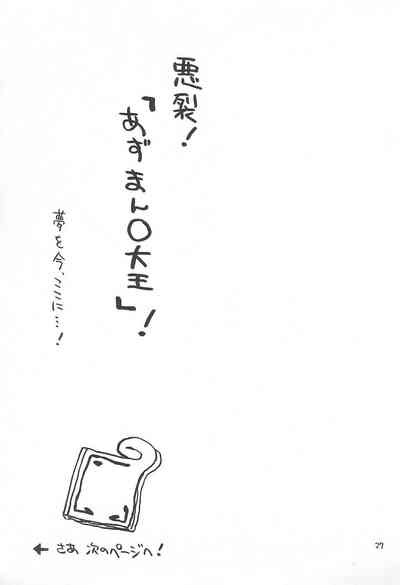 悪裂!
「あずまん○大王」!
夢を今、ここに…!
← さあ 次のページへ!
77